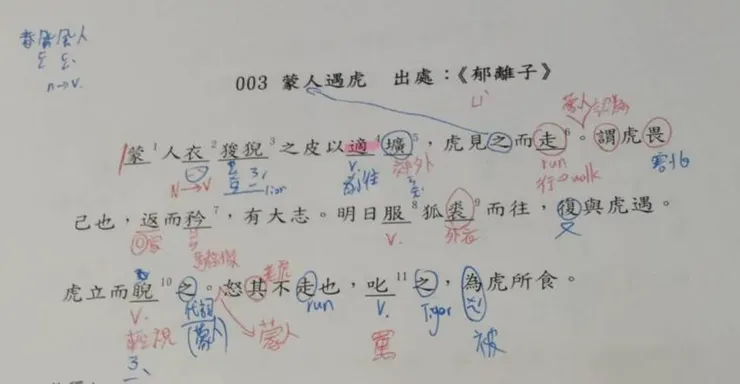 春風風人
n→v.
003 蒙人遇虎 出處：《郁離子》
ㄩˋ
蒙人認為
蒙¹人衣²狻猊³之皮以適⁴壙⁵，虎見之而走⁶。謂虎畏
N→V lion V. 前往 郊外 run 行→walk 害怕
己也，返而矜⁷，有大志。明日服⁸狐裘⁹而往，復與虎遇。
回家 驕傲 V. 外衣 又
虎立而睨¹⁰之。怒其不走也，叱¹¹之，為虎所食。
V. 代詞 run V. Tiger
輕視 (蒙人) 蒙人 罵 被